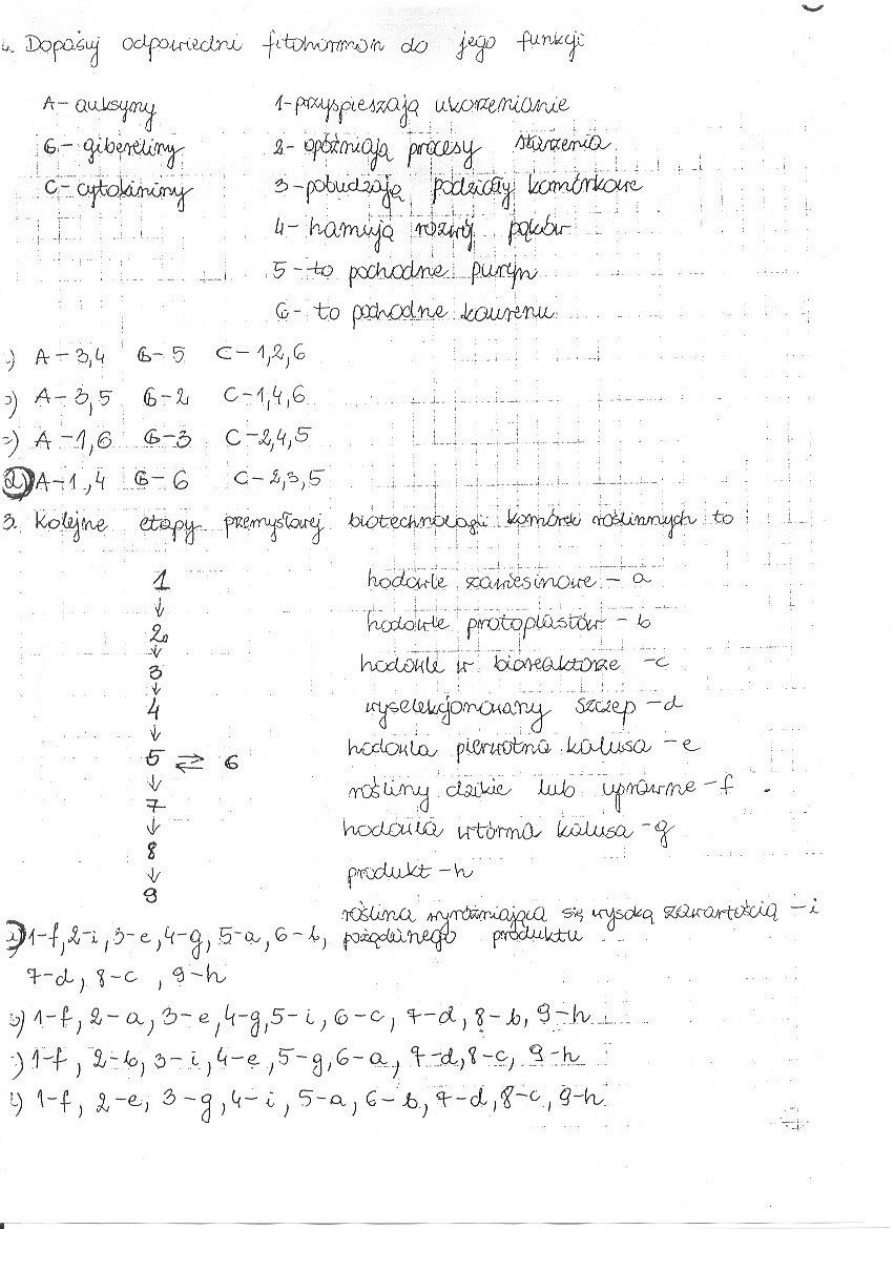 4. Dopasuj odpowiedni fitohormon do jego funkcji
A- auksyny 1-przyspieszają ukorzenianie
G- gibereliny 2- opóźniają procesy starzenia
C- cytokininy 3-pobudzają podziały komórkowe
4- hamują rozwój pąków
5- to pochodne puryn
6- to pochodne kaurenu
) A-3,4 G-5 C-1,2,6
) A-3,5 G-2 C-1,4,6
) A-1,6 G-3 C-2,4,5
d) A-1,4 G-6 C-2,3,5
5. Kolejne etapy przemysłowej biotechnologii komórek roślinnych to
1 hodowle zawiesinowe - a
↓
2 hodowle protoplastów - b
↓
3 hodowle w bioreaktorze -c
↓
4 wyselekcjonowany szczep -d
↓
5 ⇄ 6 hodowla pierwotna kalusa -e
↓ rośliny dzikie lub uprawne -f
7
↓ hodowla wtórna kalusa -g
8
↓ produkt -h
9
roślina wyróżniająca się wysoką zawartością -i
pożądanego produktu
a) 1-f, 2-i, 3-e, 4-g, 5-a, 6-b,
7-d, 8-c, 9-h
b) 1-f, 2-a, 3-e, 4-g, 5-i, 6-c, 7-d, 8-b, 9-h
) 1-f, 2-b, 3-i, 4-e, 5-g, 6-a, 7-d, 8-c, 9-h
) 1-f, 2-e, 3-g, 4-i, 5-a, 6-b, 7-d, 8-c, 9-h